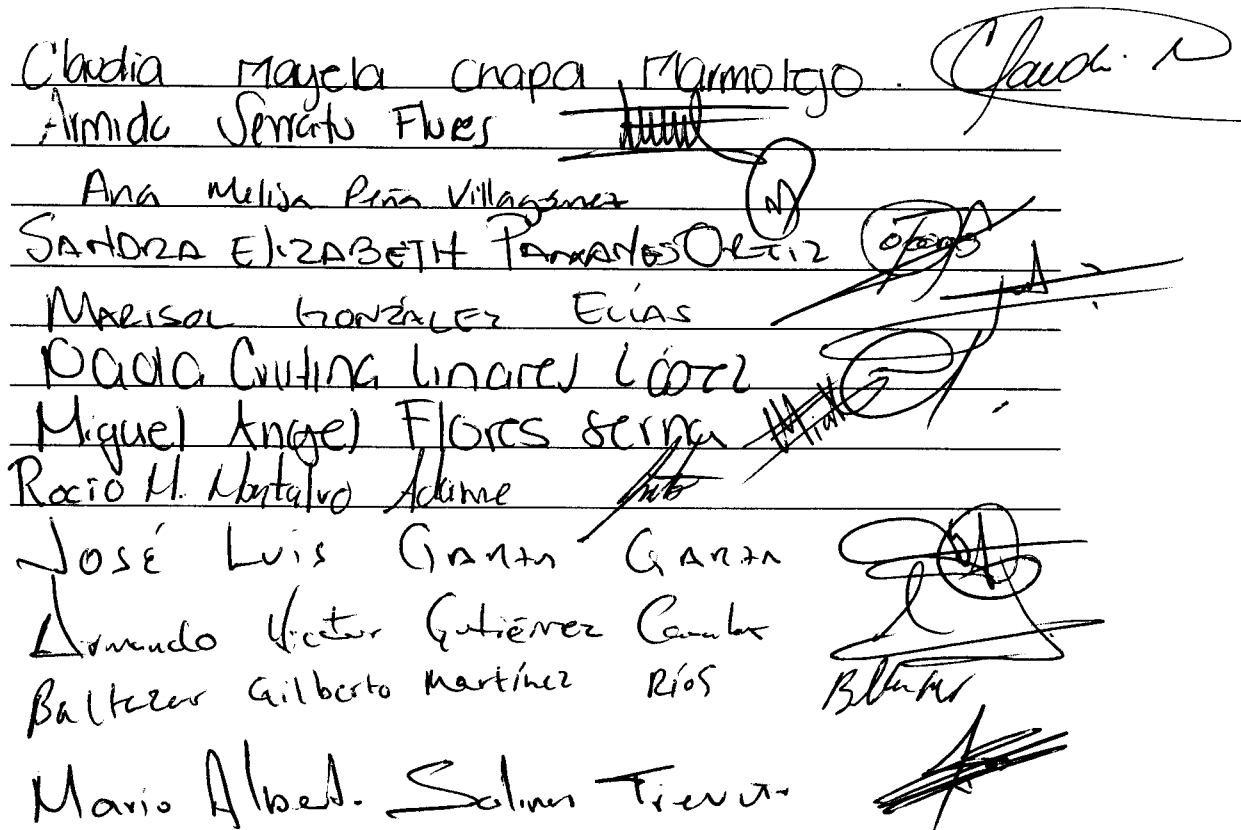 Claudia Mayela Chapa Marmolejo. Claudi. M
Armida Serrato Flores
Ana Melisa Peña Villagómez
SANDRA ELIZABETH PÁMANES ORTIZ
MARISOL GONZÁLEZ ELÍAS
Paola Cristina Linares López
Miguel Angel Flores Serna
Rocio M. Montalvo Adame
JOSÉ LUIS GARZA GARZA
Armando Victor Gutiérrez Canales
Baltazar Gilberto Martínez Ríos
Mario Alberto Salinas Treviño